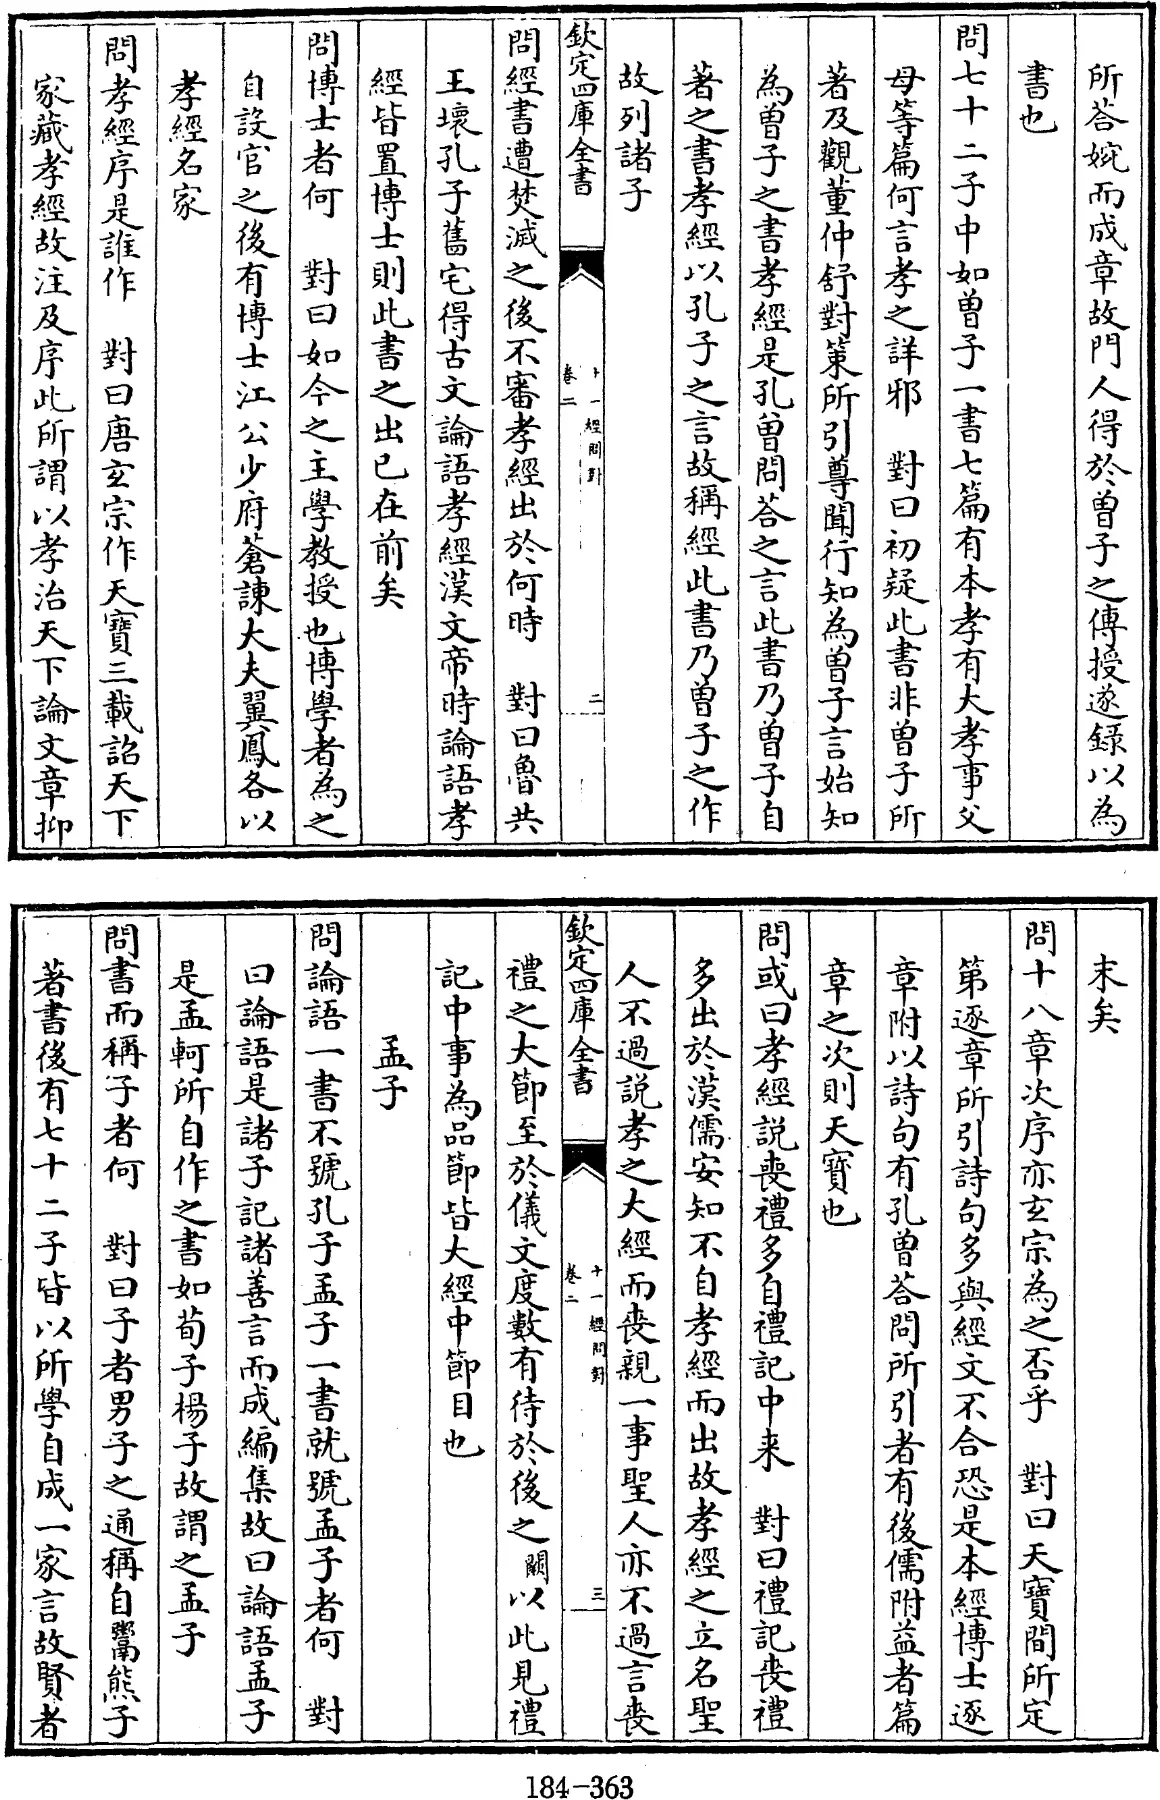 所答婉而成章故門人得於曾子之傳授遂錄以為
書也
問七十二子中如曾子一書七篇有本孝有大孝事父
母等篇何言孝之詳邪　對曰初疑此書非曾子所
著及觀董仲舒對策所引尊聞行知為曾子言始知
為曾子之書孝經是孔曾問荅之言此書乃曾子自
著之書孝經以孔子之言故稱經此書乃曾子之作
故列諸子
欽定四庫全書　十一經問對　卷二　二
問經書遭焚滅之後不審孝經出於何時　對曰魯共
王壞孔子舊宅得古文論語孝經漢文帝時論語孝
經皆置博士則此書之出已在前矣
問博士者何　對曰如今之主學教授也博學者為之
自設官之後有博士江公少府蒼諫大夫翼鳳各以
孝經名家
問孝經序是誰作　對曰唐玄宗作天寶三載詔天下
家藏孝經故注及序此所謂以孝治天下論文章抑
末矣
問十八章次序亦玄宗為之否乎　對曰天寶間所定
第逐章所引詩句多與經文不合恐是本經博士逐
章附以詩句有孔曾荅問所引者有後儒附益者篇
章之次則天寶也
問或曰孝經說喪禮多自禮記中来　對曰禮記喪禮
多出於漢儒安知不自孝經而出故孝經之立名聖
人不過説孝之大經而喪親一事聖人亦不過言喪
欽定四庫全書　十一經問對　卷二　三
禮之大節至於儀文度數有待於後之闕以此見禮
記中事為品節皆大經中節目也
孟子
問論語一書不號孔子孟子一書就號孟子者何　對
曰論語是諸子記諸善言而成編集故曰論語孟子
是孟軻所自作之書如荀子楊子故謂之孟子
問書而稱子者何　對曰子者男子之通稱自鬻熊子
著書後有七十二子皆以所學自成一家言故賢者
184-363